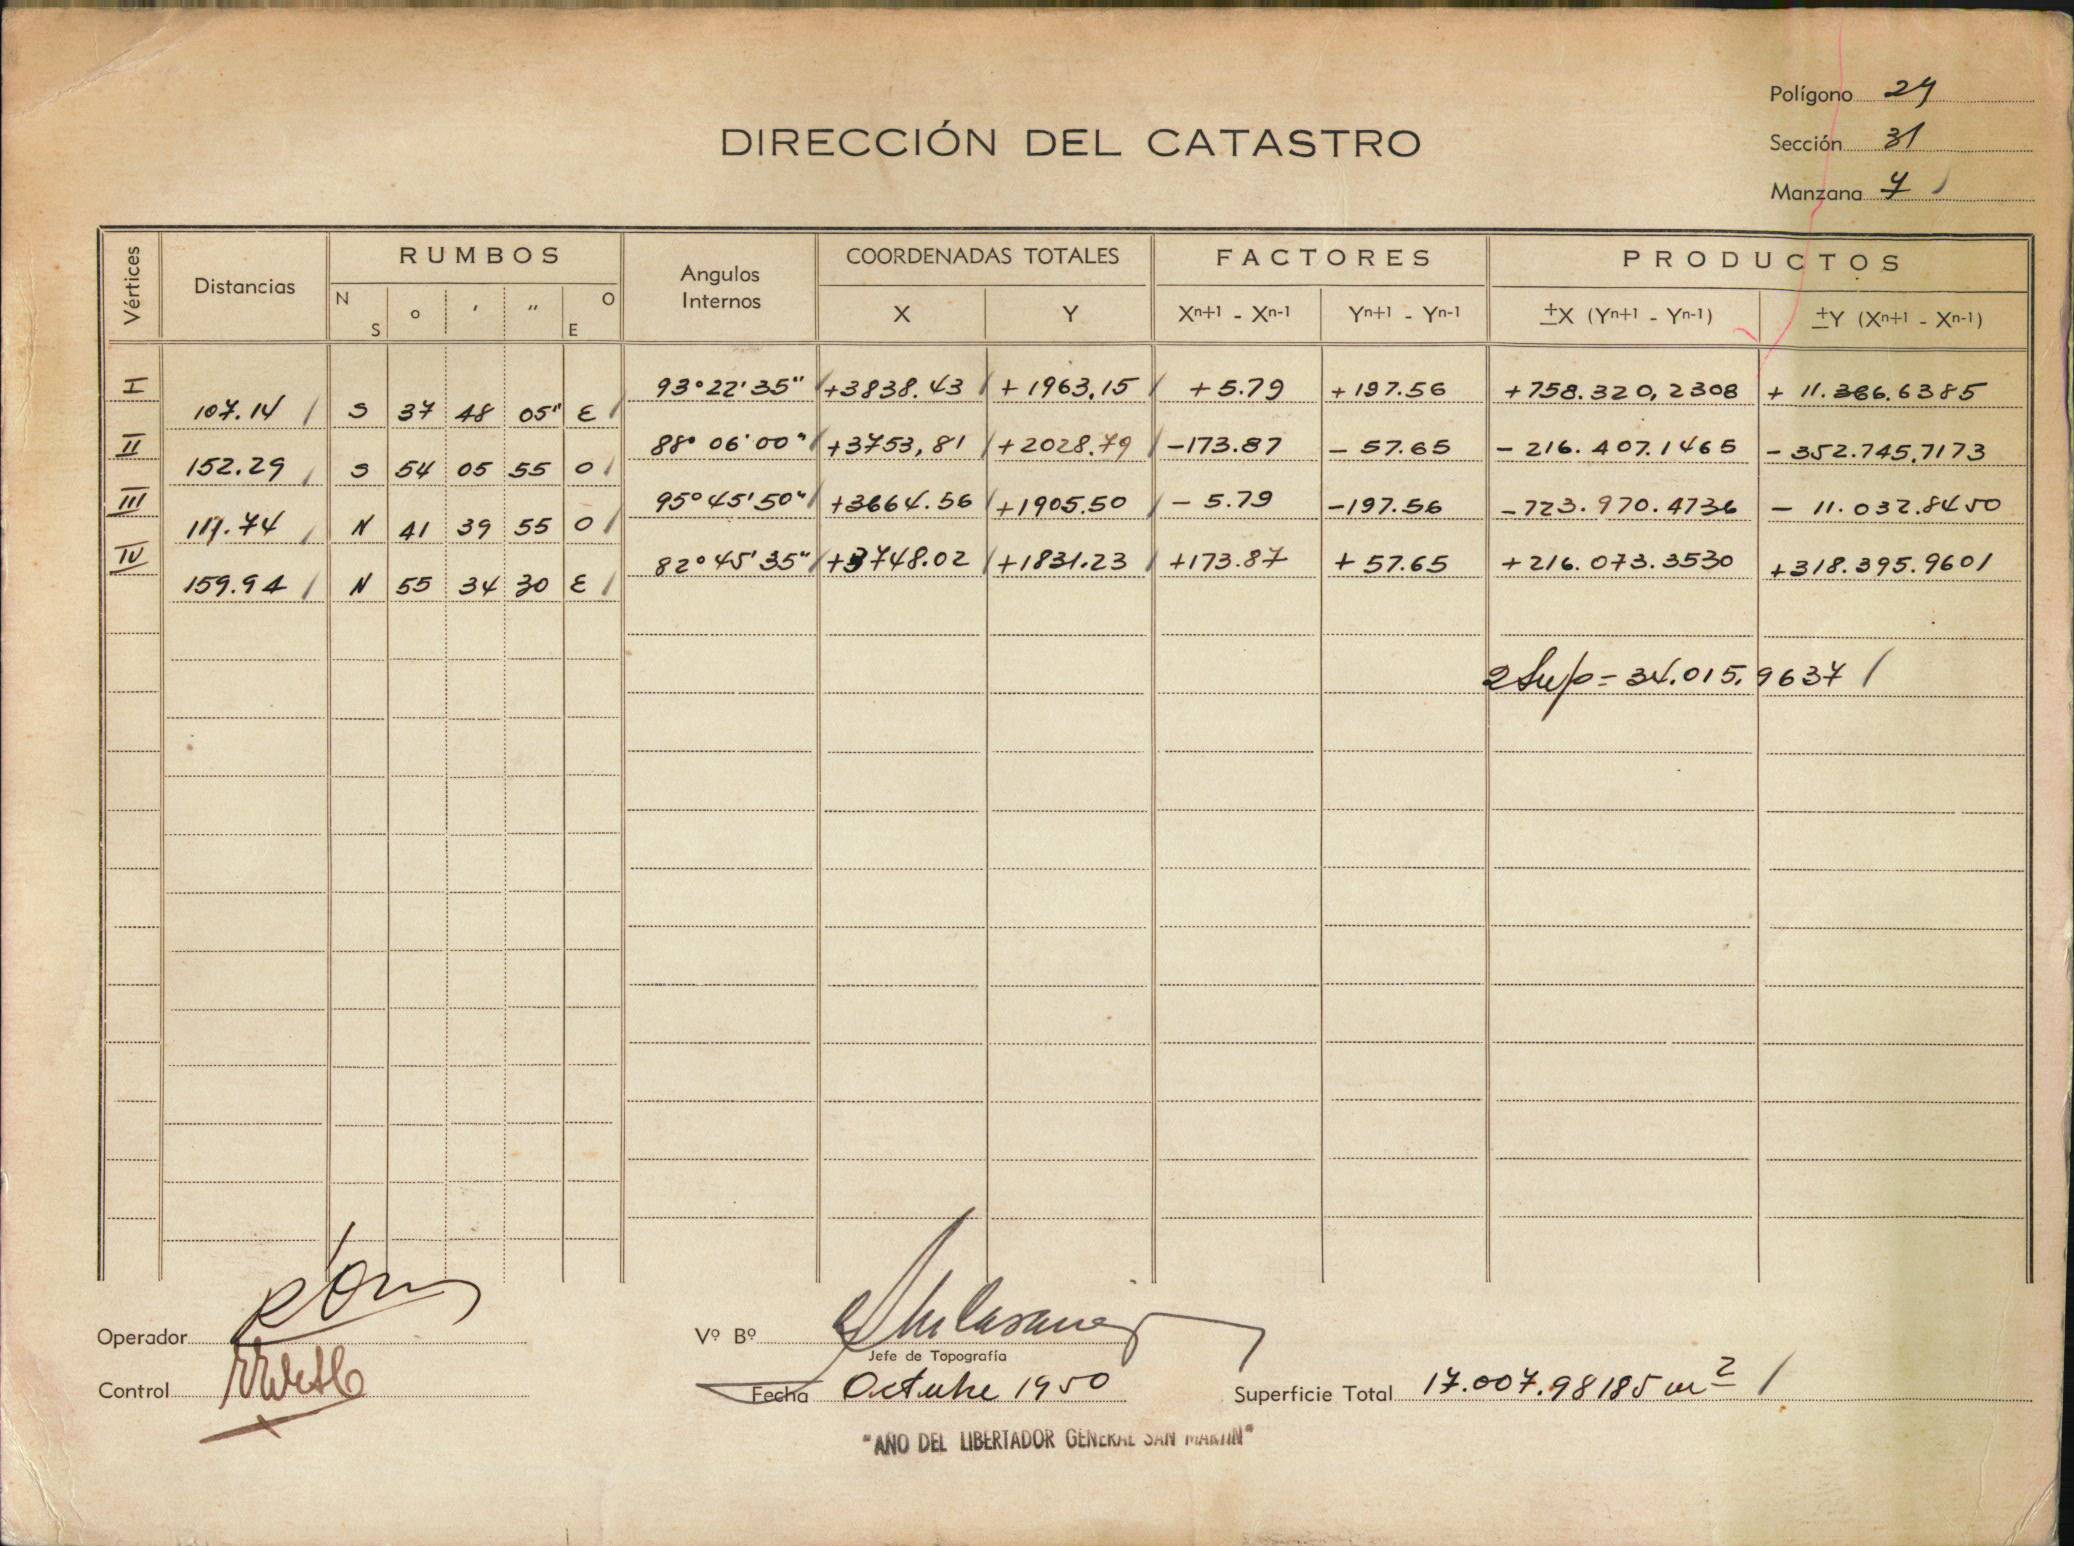 Polígono 24
Sección 31
Manzana 7
DIRECCIÓN DEL CATASTRO
Vértices Distancias RUMBOS Angulos Internos COORDENADAS TOTALES FACTORES PRODUCTOS
N S ° ' " O E X Y Xn+1 - Xn-1 Yn+1 - Yn-1 ±X (Yn+1 - Yn-1) ±Y (Xn+1 - Xn-1)
I 93°22'35" +3838.43 +1963,15 +5.79 +197.56 +758.320,2308 + 11.366.6385
107.14 S 37 48 05" E
II 88° 06'00" +3753,81 +2028.79 -173.87 - 57.65 - 216.407.1465 - 352.745.7173
152.29 S 54 05 55 O
III 95°45'50" +3664.56 +1905.50 - 5.79 -197.56 -723.970.4736 - 11.032.8450
111.74 N 41 39 55 O
IV 82°45'35" +3748.02 +1831.23 +173.87 +57.65 +216.073.3530 +318.395.9601
159.94 N 55 34 30 E
2 Sup = 34.015.9637
Operador
Vº Bº
Jefe de Topografía
Control
Fecha Octubre 1950
Superficie Total 17.007.98185 m2
"AÑO DEL LIBERTADOR GENERAL SAN MARTIN"